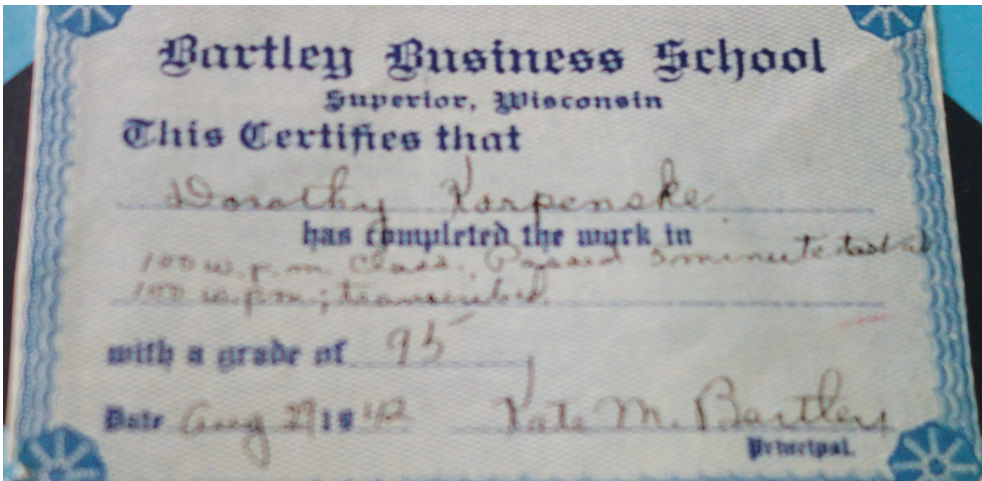 Bartley Business School
Superior, Wisconsin
This Certifies that
Dorothy Korpenske
has completed the work in
100 w.p.m. class. Passed 5 minute test at
100 w.p.m.; transcribed.
with a grade of 95
Date Aug 29 1942 Kate M. Bartley
Principal.